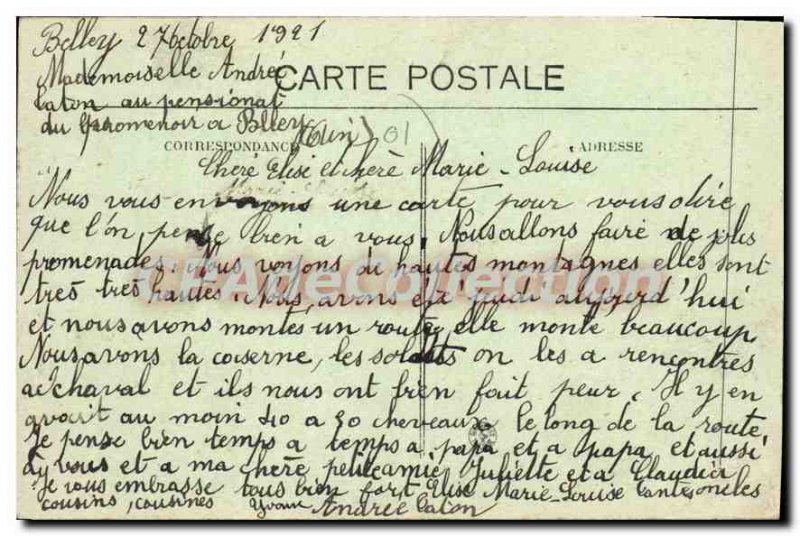 Belley 27 octobre 1921
Mademoiselle Andrée
Caton au pensionat
du Promenoir a Belley
(Ain) 01
CARTE POSTALE
CORRESPONDANCE
ADRESSE
Cheré Elise et cheré Marie-Louise
Nous vous envoyons une carte pour vous dire
que l'on pense bien a vous. Nous allons faire de jolis
promenades. Nous voyons de hautes montagnes elles sont
très très hautes. Nous avons été jeudi aujourd'hui
et nous avons montés un route, elle monte beaucoup
Nous avons la caserne, les soldats on les a rencontrés
a chaval et ils nous ont bien fait peur. Il y en
avait au moin 40 a 50 cheveaux le long de la route
Je pense bien temps a temps a papa et a papa et aussi
a vous et a ma chère petite amie Juliette et a Claudia
Je vous embrasse tous bien fort Elise Marie-Louise tantes oncles
cousins, cousines Yvonne Andrée Caton